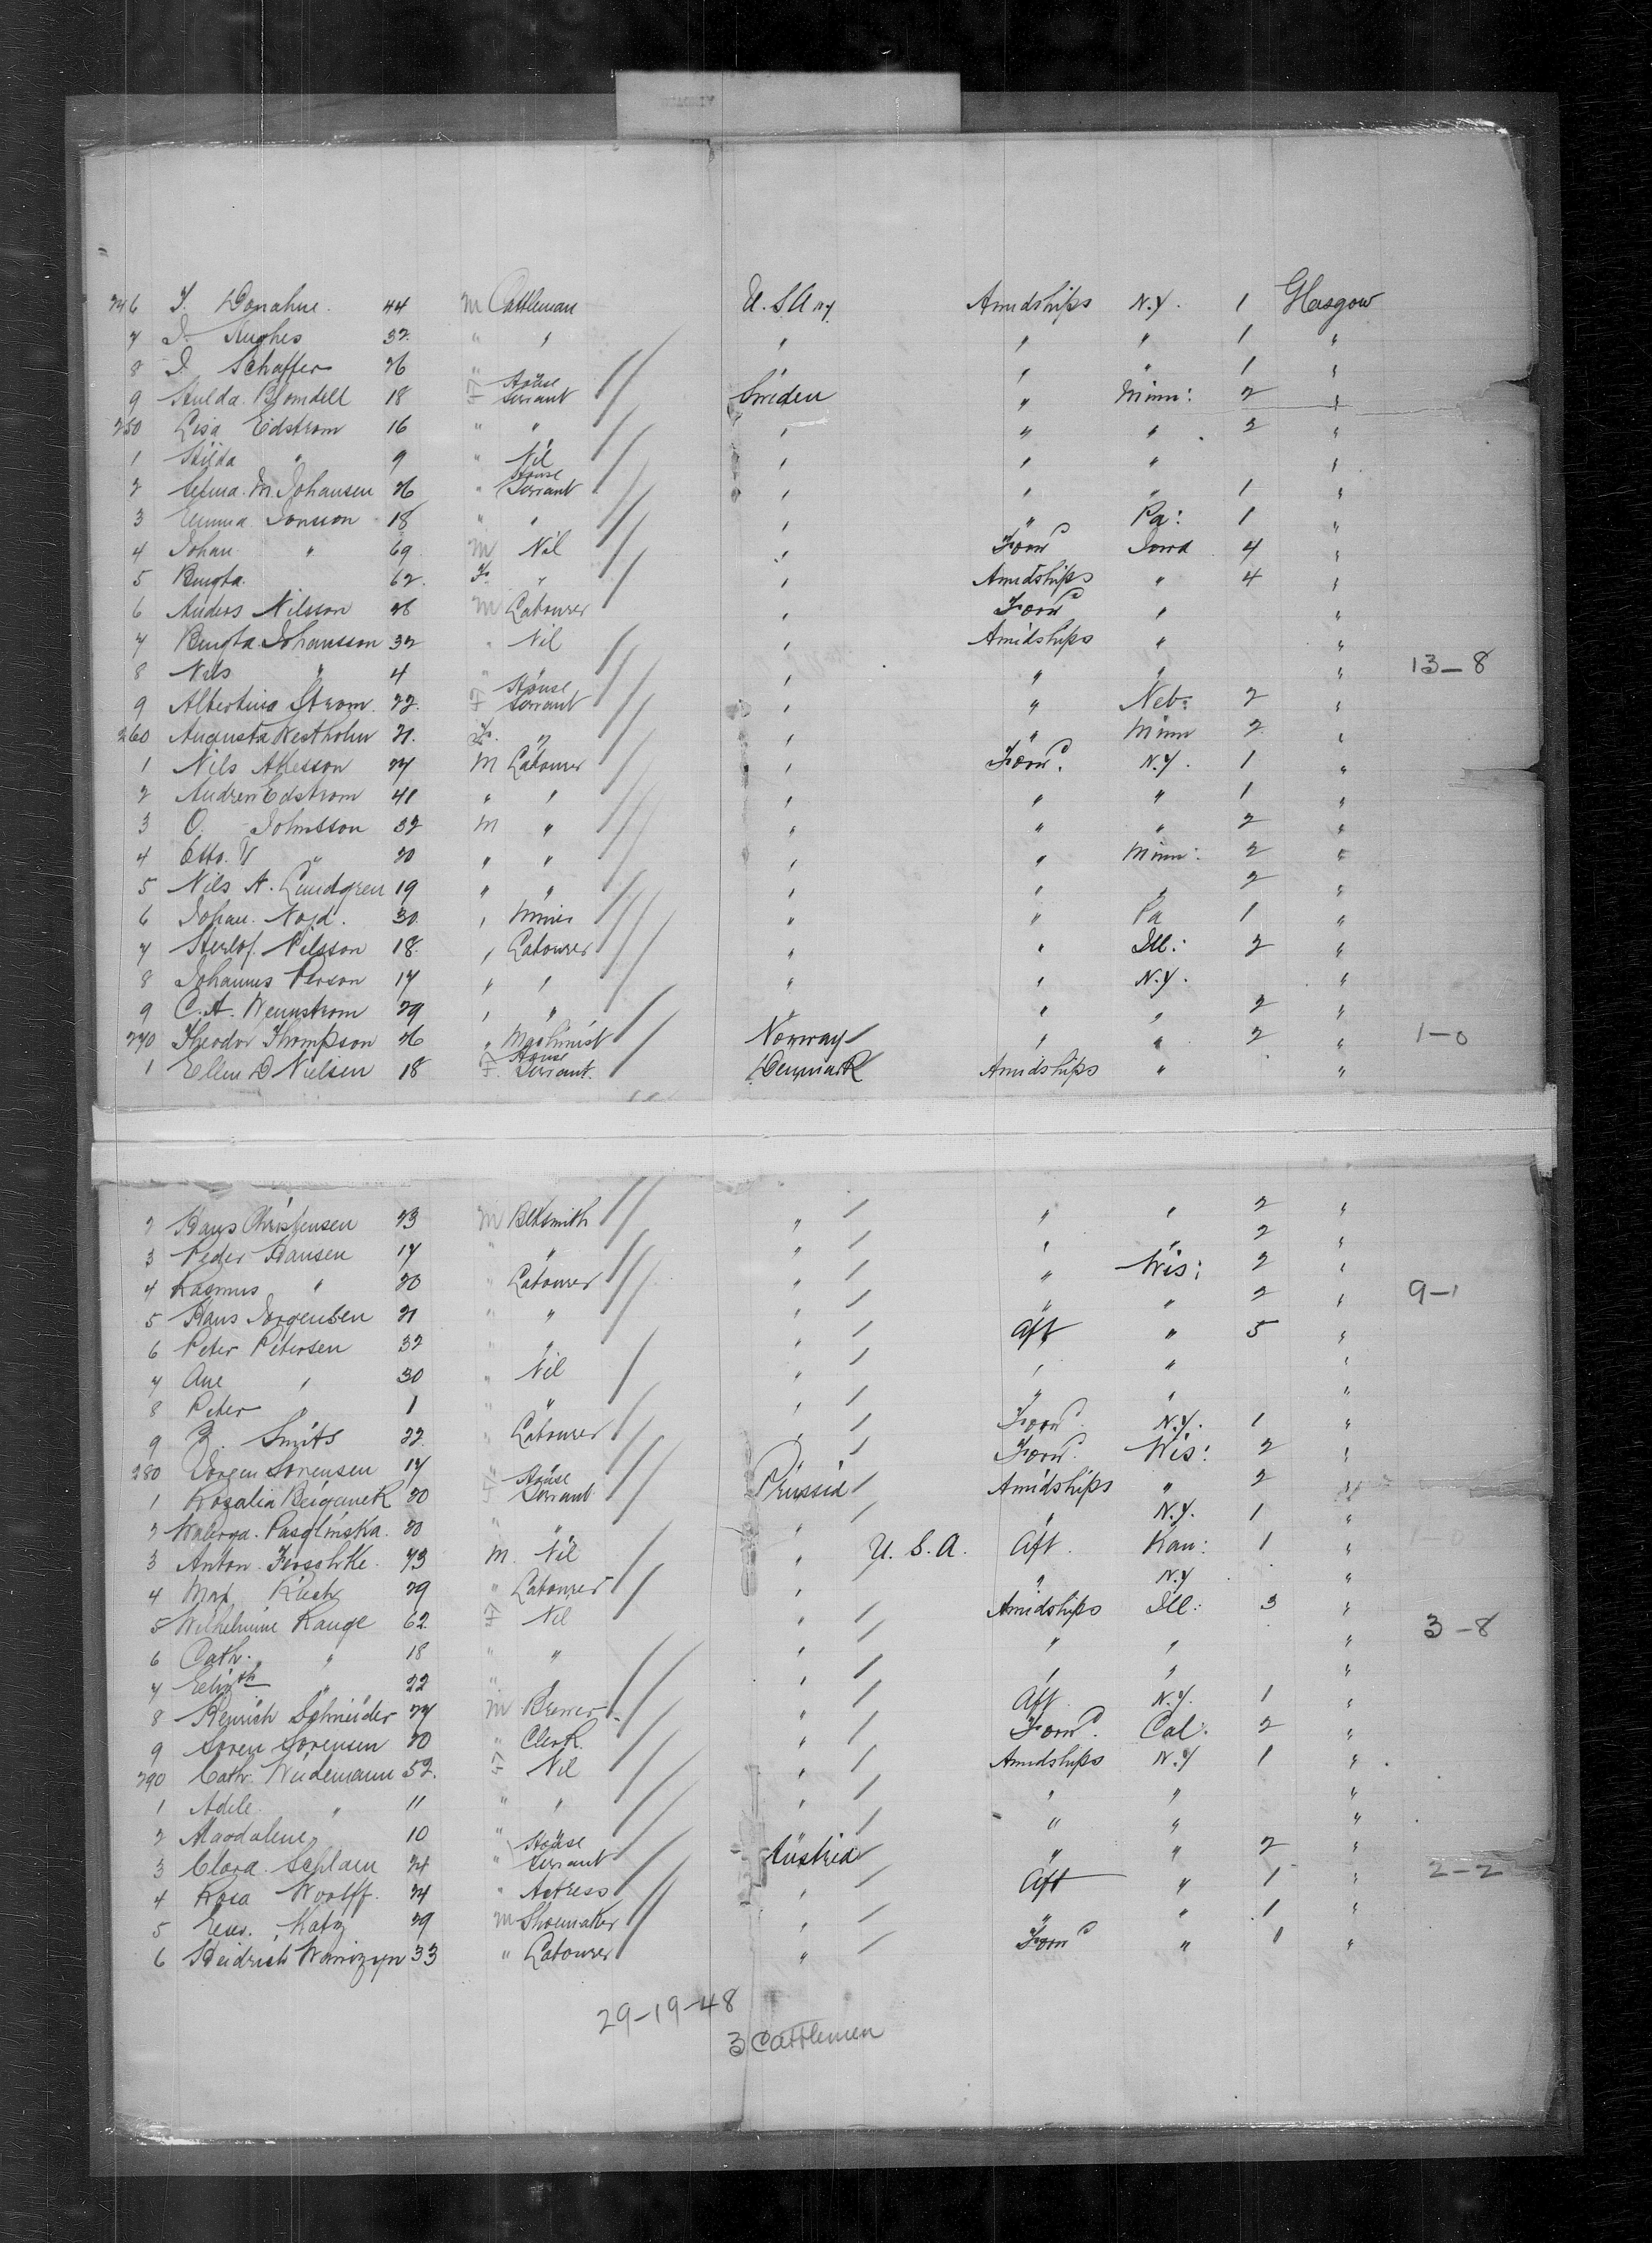 246 J. Donahue. 44 M Cattleman U.S.A ny. Amidships N.Y. 1 Glasgow
7 J. Hughes 32 " " " " " 1 "
8 J. Schaffer 26 " " " 1 "
9 Hulda Blomdell 18 F House Servant Sweden " Minn: 2 "
250 Lisa Edstrom 16 " " " " " 2 "
1 Hilda " 9 " Nil " " " "
2 Selma M. Johansen 26 " House Servant " " " 1 "
3 Emma Jonsson 18 " " " " Pa: 1 "
4 Johan " 69 M Nil " Forwd Iowa 4 "
5 Bengta 62 F. " " Amidships " 4 "
6 Anders Nilsson 28 M Labourer " Forwd " "
7 Bengta Johansson 32 " Nil " Amidships " "
8 Nils " 4 " " " " " 13-8
9 Albertina Strom 22. F House Servant " " Neb: 2 "
260 Augusta Westholm 21. F. " " " Minn 2 "
1 Nils Akesson 27 M Labourer " Forwd. N.Y. 1 "
2 Andren Edstrom 41 " " " " " 1 "
3 O. Johnsson 32 M " " " " 2 "
4 Otto. V " 20 " " " " Minn: 2 "
5 Nils A. Lundgren 19 " " " " " 2 "
6 Johan. Nojd. 30. " Miner " " Pa 1 "
7 Herlof Nilsson 18. " Labourer " " Ill: 2 "
8 Johannes Person 17 " " " " N.Y. "
9 C.A. Wennstrom 29 " " " " 2 "
270 Theodor Thompson 26 " Machinist Norway " " 2 " 1-0
1 Ellen D Nielsen 18 F. House Servant. Denmark Amidships " "
2 Hans Christensen 23 M Blksmith " " " 2 "
3 Peder Hansen 17 " " " " " 2 "
4 Rasmus " 20 " Labourer " " Wis: 2 "
5 Hans Jorgensen 21 " " " " " 2 " 9-1
6 Peter Petersen 32 " " " Aft " 5 "
7 Ane " 30 " Nil " " " "
8 Peter " 1 " " " " " "
9 Z. Smits 22. " Labourer " Forwd. N.Y. 1 "
280 Jorgen Sorensen 17 " " Forwd. Wis: 2 "
1 Rosalia 20 F House Servant Prussia Amidships " 2 "
2 Pasglinska. 20 " " " " N.Y. 1 "
3 Anton 73 M. Nil " U.S.A. Aft. Kan: 1 "
4 Max 29 " Labourer " " N.Y "
5 Wilhelmine Range 62 F Nil " Amidships Ill: 3 " 3-8
6 Cath. " 18 " " " " " "
7 Elizth " 22 " " " " "
8 Henrich Schneider 27 M Brewer " Aft. N.Y. 1 "
9 Soren Sorensen 20 " Clerk " Forwd. Cal: 2 "
290 Cath. Weidemann 52. F Nil " Amidships N.Y 1 "
1 Adele " 11 " " " " " "
2 Magdalene " 10 " " " "
3 Clara Schlam 24 " House Servant Austria " " 2 "
4 Rosa Woolff. 24 " Actress " Aft " 1 " 2-2
5 Katz 29 M Shoemaker " " " 1 "
6 Heidrich 33 " Labourer " Forwd " 1 "
29-19-48
3 Cattlemen